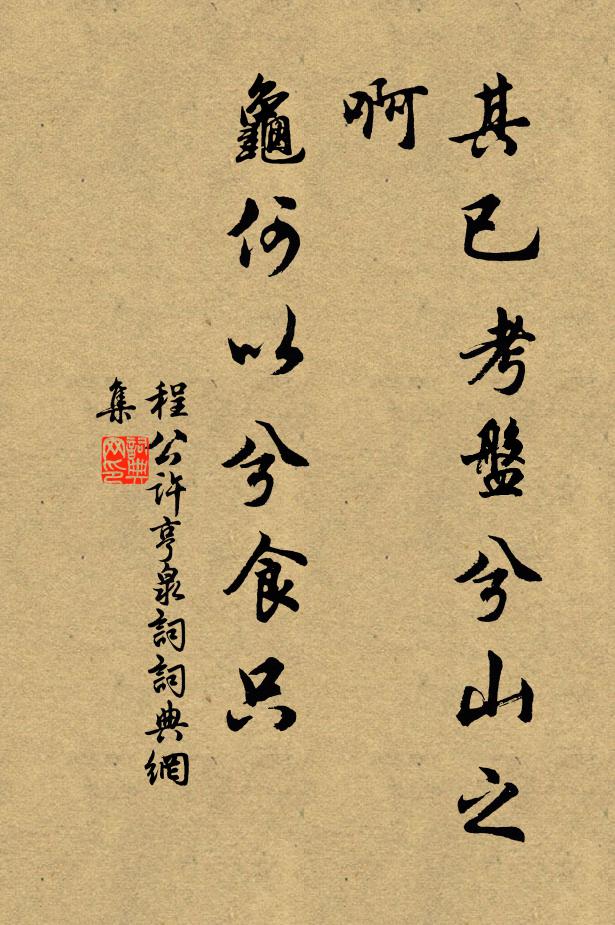 其已考盤兮山之
啊
龜何以兮食只
程公許亨泉詞詞典網
集
詞典
网印